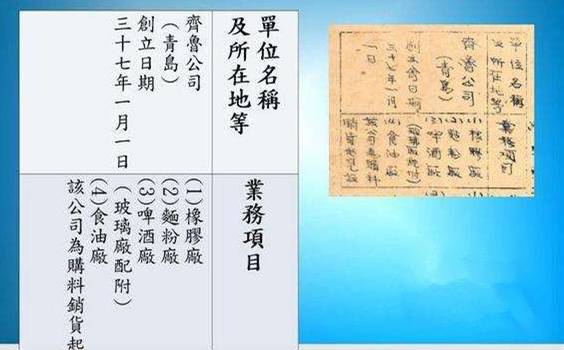 單位名稱
及所在地等
齊魯公司
(青島)
創立日期
三十七年一月一日
業務項目
(1)橡膠廠
(2)麵粉廠
(3)啤酒廠
(玻璃廠配附)
(4)食油廠
該公司為購料銷貨起
單位名稱
及所在地等
齊魯公司
(青島)
創立日期
三十七年一月
一日
業務項目
(1)橡膠廠
(2)麵粉廠
(3)啤酒廠
(玻璃廠配附)
(4)食油廠
該公司為購料
銷貨起見設